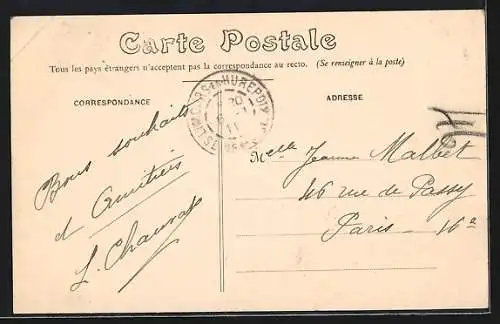 Carte Postale
Tous les pays étrangers n'acceptent pas la correspondance au recto. (Se renseigner à la poste)
CORRESPONDANCE
ADRESSE
HUREPOIX
20
11
Bons souhaits
et Amitiés
Melle Jeanne Malbet
46 rue de Passy
Paris - 16e